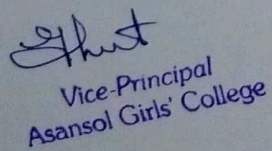 Vice-Principal
Asansol Girls' College